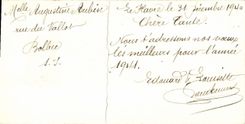 Melle Augustine Aubin
rue du Vallot
Bolbec
S. I.
Le Havre le 31 décembre 1940
Chère Tante
Nous t'adressons nos voeux
les meilleurs pour l'année
1941.
Edouard & Louisette